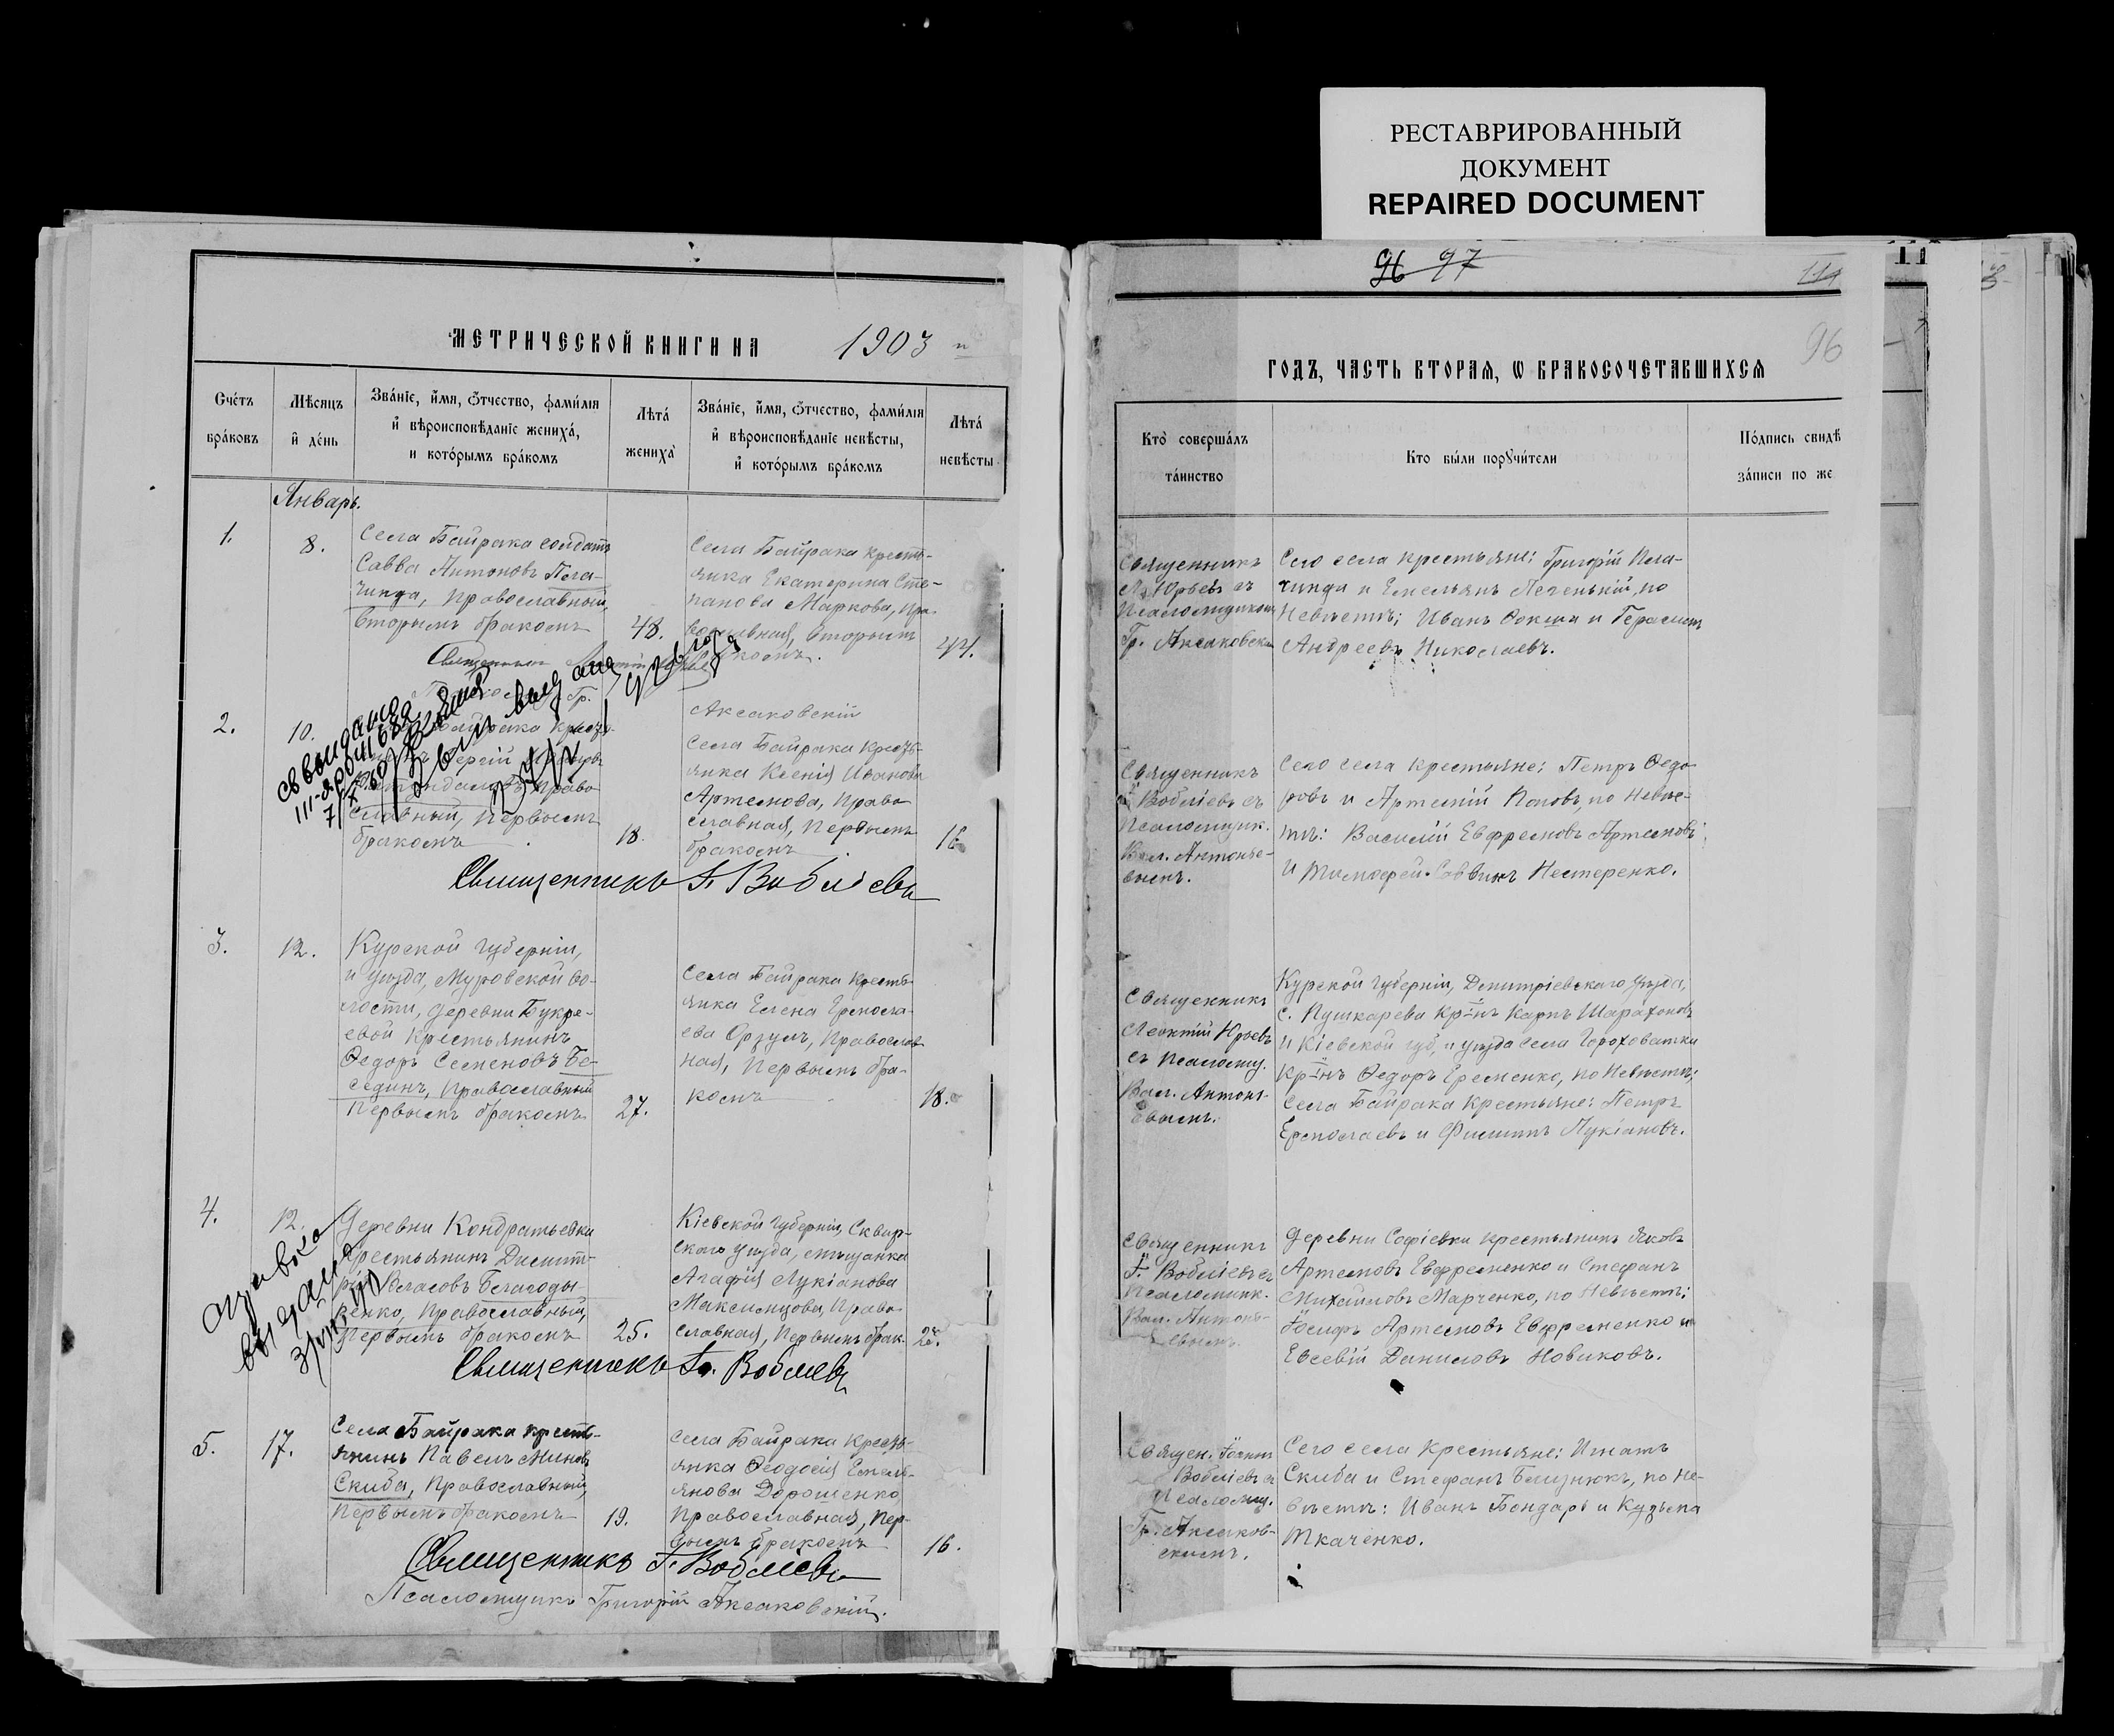 РЕСТАВРИРОВАННЫЙ
ДОКУМЕНТ
REPAIRED DOCUMENT
МЕТРИЧЕСКОЙ КНИГИ НА 1903
Счетъ браковъ
Мѣсяцъ и день
Званіе, имя, отчество, фамилія
и вѣроисповѣданіе жениха,
и которымъ бракомъ
Лѣта жениха
Званіе, имя, отчество, фамилія
и вѣроисповѣданіе невѣсты,
и которымъ бракомъ
Лѣта невѣсты
Январь.
1.
8.
Села Байрака солдатъ
Савва Антоновъ Пела-
гинда, Православный,
вторымъ бракомъ
48.
Села Байрака кресть-
янка Екатерина Сте-
панова Маркова, Пра-
вославная, вторымъ
44.
Священникъ
2.
10.
славный, Первымъ
бракомъ
18
Аксаковскій
Села Байрака кресть-
янка Ксенія Иванова
Артемова, Право-
славная, Первымъ
бракомъ
Священникъ І. Воблiевъ
3.
12.
Курской губерніи,
и уѣзда, Муровской во-
лости, деревни Букре-
евой крестьянинъ
Ѳедоръ Семеновъ Бе-
сединъ, Православный
Первымъ бракомъ
27.
Села Байрака кресть-
янка Елена Ермола-
ева Орзулъ, Православ-
ная, Первымъ бра-
комъ
18.
4.
12.
Деревни Кондратьевки
крестьянинъ Димит-
рій Власовъ Благоды-
ренко, Православный,
Первымъ бракомъ
25.
Кіевской губерніи, Сквир-
скаго уѣзда, мѣщанка
Агафія Лукіанова
Максимцова, Право-
славная, Первымъ брак.
Справка
выдана
Священникъ Іо. Воблiевъ
5.
17.
Села Байрака кресть-
янинъ Павелъ Миновъ
Скиба, Православный,
Первымъ бракомъ
19.
Села Байрака кресть-
янка Ѳеодосія Емель-
янова Дорошенко
Православная, Пер-
вымъ бракомъ
16.
Священникъ І. Воблiевъ
Псаломщикъ Григорій Аксаковскій.
96 97
114
96
ГОДЪ, ЧАСТЬ ВТОРАЯ, Ѡ БРАКОСОЧЕТАВШИХСЯ
Кто совершалъ
таинство
Кто были поручители
Подпись свидѣ
записи по же
Священникъ
Л. Юрьевъ съ
Псаломщикомъ
Гр. Аксаковским
Сего села крестьяне: Григорій Пела-
гинда и Емельянъ Печенькій, по
Невѣстѣ; Иванъ Ѳокша и Герасимъ
Андреевъ Николаевъ.
Священникъ
І. Воблiевъ съ
Псаломщик.
Вал. Антонье-
вымъ.
Сего села крестьяне: Петръ Ѳедо-
ровъ и Артемій Поповъ, по Невѣс-
тѣ: Василій Евфремовъ Артемовъ
и Тимофей Саввинъ Нестеренко.
Священникъ
Леонтій Юрьевъ
съ Псаломщ.
Вал. Антонь-
евымъ.
Курской губерніи, Димитріевскаго уѣзда,
с. Пушкарева кр-нъ Карпъ Шарафоновъ
и Кіевской губ, и уѣзда села Гороховатки
кр-нъ Ѳедоръ Еременко, по Невѣстѣ;
Села Байрака крестьяне: Петръ
Ермолаевъ и Филиппъ Лукіановъ.
Священникъ
І. Воблiевъ съ
Псаломщик.
Вал. Антонь-
евымъ.
Деревни Софіевки крестьянинъ Яковъ
Артемовъ Евфременко и Стефанъ
Михайловъ Марченко, по Невѣстѣ;
Іосифъ Артемовъ Евфременко и
Евсевій Даниловъ Новиковъ.
Священ. Іоаннъ
Воблiевъ съ
Псаломщ.
Гр. Аксаков-
скимъ.
Сего села крестьяне: Игнатъ
Скиба и Стефанъ Близнюкъ, по Не-
вѣстѣ: Иванъ Бондарь и Кузьма
Ткаченко.